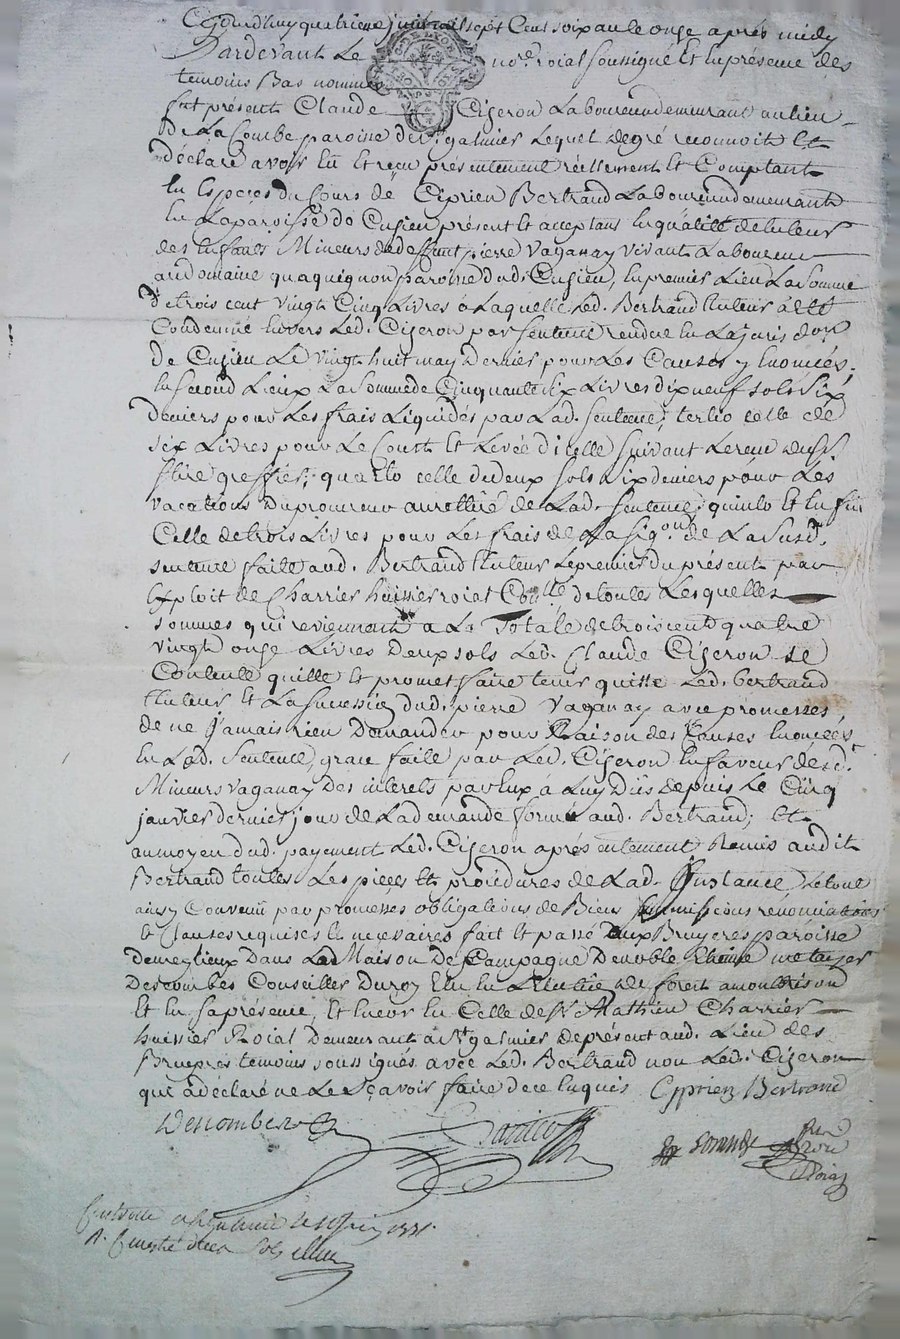 Cejourdhuy quatrieme juin mil sept Cent soixante onze après midy
Pardevant Le no.re roial soussigné Et En présence des
temoins Bas nommé
fut présent Claude Ciseron Laboureur demeurant au lieu
de La Combe paroisse de St galmier Lequel de gré reconnoit Et
déclare avoir Eû Et reçu présentement réellement Et Comptant
En Especes du Cours de Ciprien Bertrand Laboureur demeurant
En La paroisse de Cusieu présent Et acceptant En qualité de tuteur
des Enfants Mineurs de deffunt pierre Vaganay vivant Laboureur
au domaine paroisse dud. Cusieu, En premier Lieu La somme
de trois cent vingt Cinq Livres à Laquelle Led. Bertrand tuteur à Eté
Condemné Envers Led. Ciseron par sentence rendue En La juris d.on
de Cusieu Le vingt huit may Dernier pour Les Causes y Enoncées;
En second Lieux La somme de Cinquante six Livres dix neuf sols six
deniers pour Les frais Liquidés par Lad. sentence; tertio celle de
six Livres pour Le Cout Et Levée d'icelle suivant Le recu du
greffier; quarto celle de deux sols six deniers pour Les
vacations Du procureur de Lad. sentence; quinto Et Enfin
Celle de trois Livres pour Les frais de La sig.on de La susd.
sentence faitte aud. Bertrand tuteur Le premier du présent par
Exploit de Charrier huissier roial de toutes Lesquelles
sommes qui reviennent a La Totale de trois cent quatre
vingt onze Livres deux sols Led. Claude Ciseron se
Contente quitte Et promet faire tenir quitte Led. Bertrand
tuteur Et La succession dud. pierre Vaganay avec promesses
de ne Jamais rien Demander pour Raison des Causes Enoncées
En Lad. sentence, grace faite par Led. Ciseron En faveur desd.
Mineurs vaganay Des interets par Eux à Luy Dûs depuis Le Cinq
janvier dernier jour de La demande formée aud. Bertrand; Et
au moyen dud. payement Led. Ciseron a présentement Remis audit
Bertrand toutes Les pieces Et procédures de Lad. Instance, Le tout
ainsy Convenu par promesses obligations de Biens soumissions rénonciations
Et Clauses requises Et nécessaires fait Et passé Aux Bruyeres paroisse
de meylieux Dans La Maison De Campagne De noble
Descombes Conseiller Du roy Elu En L'Election de forest a montbrison
Et En sa présence, Et Encor En Celle de Sr Mathieu Charrier
huissier Roial Demeurant à St galmier de présent aud. Lieu des
Bruyeres temoins soussignés avec Led. Bertrand non Led. Ciseron
qui a déclaré ne Le sçavoir faire de ce Enquis Cyprien Bertrand
Descombes